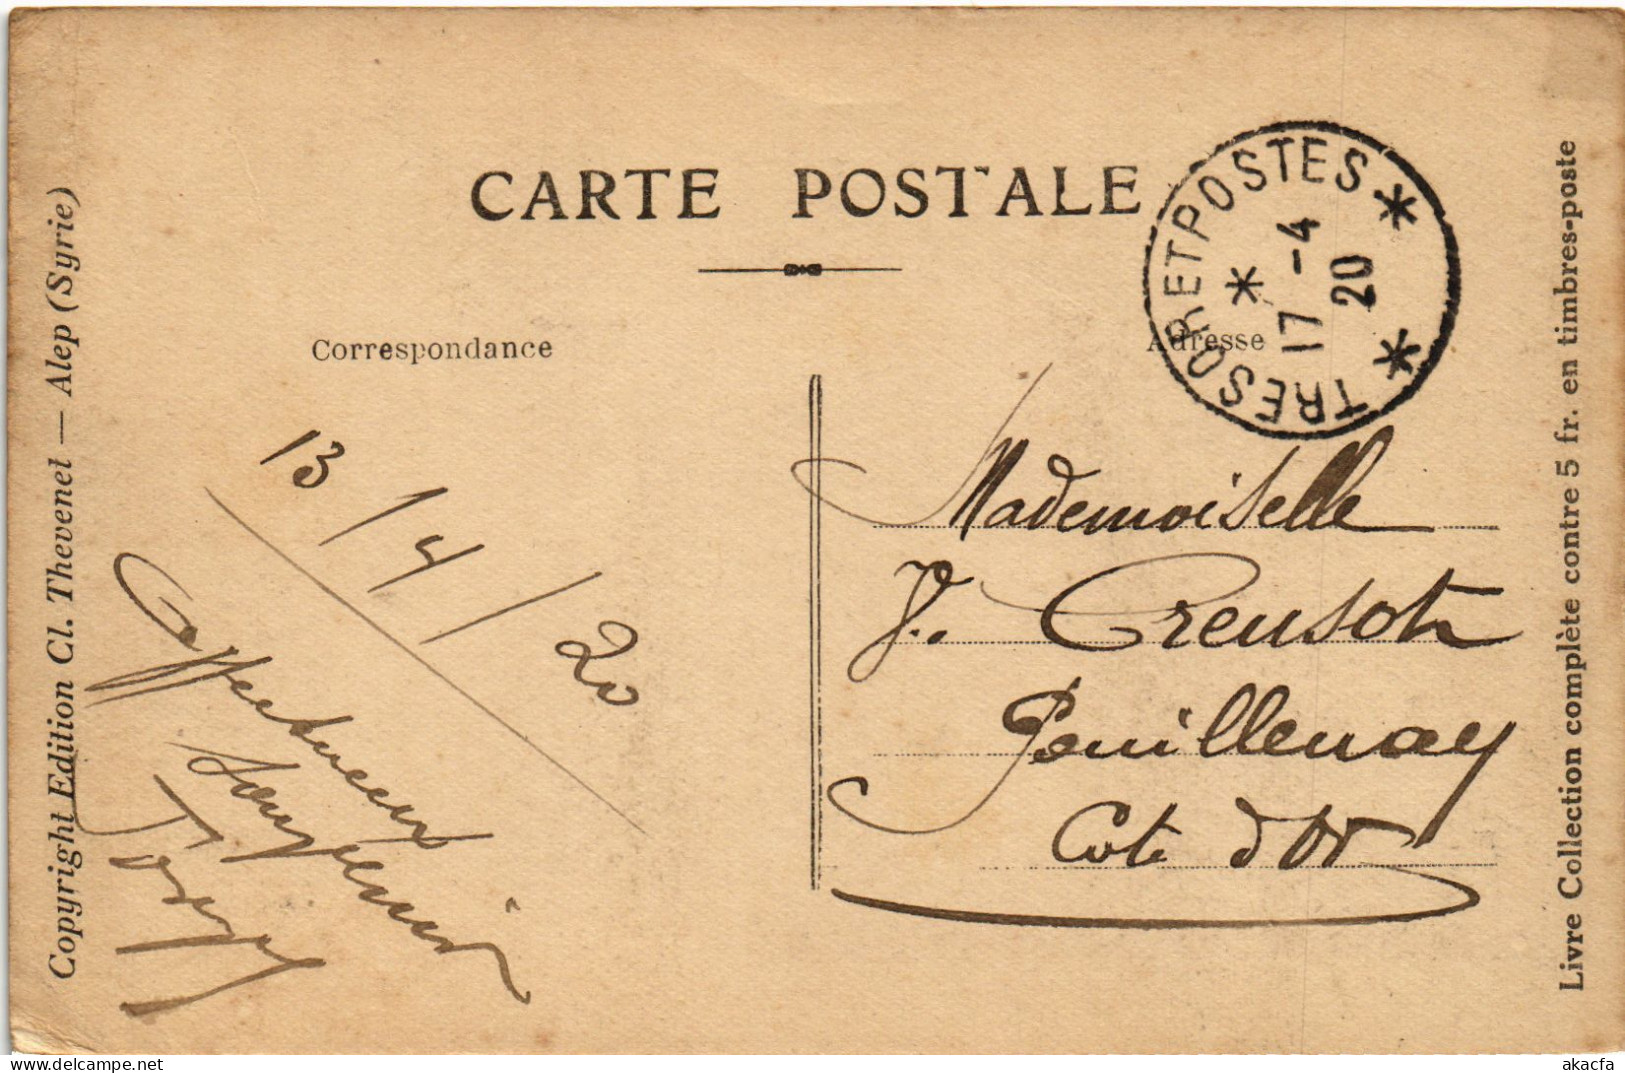 CARTE POSTALE
Correspondance
Adresse
TRESOR ET POSTES
17 -4
20
Copyright Edition Cl. Thevenel — Alep (Syrie)
13/4/20
Affectueux
souvenir
Mademoiselle
J. Creusot
Pouillenay
Côte d'Or
Livre Collection complète contre 5 fr. en timbres-poste
www.delcampe.net
akacfa